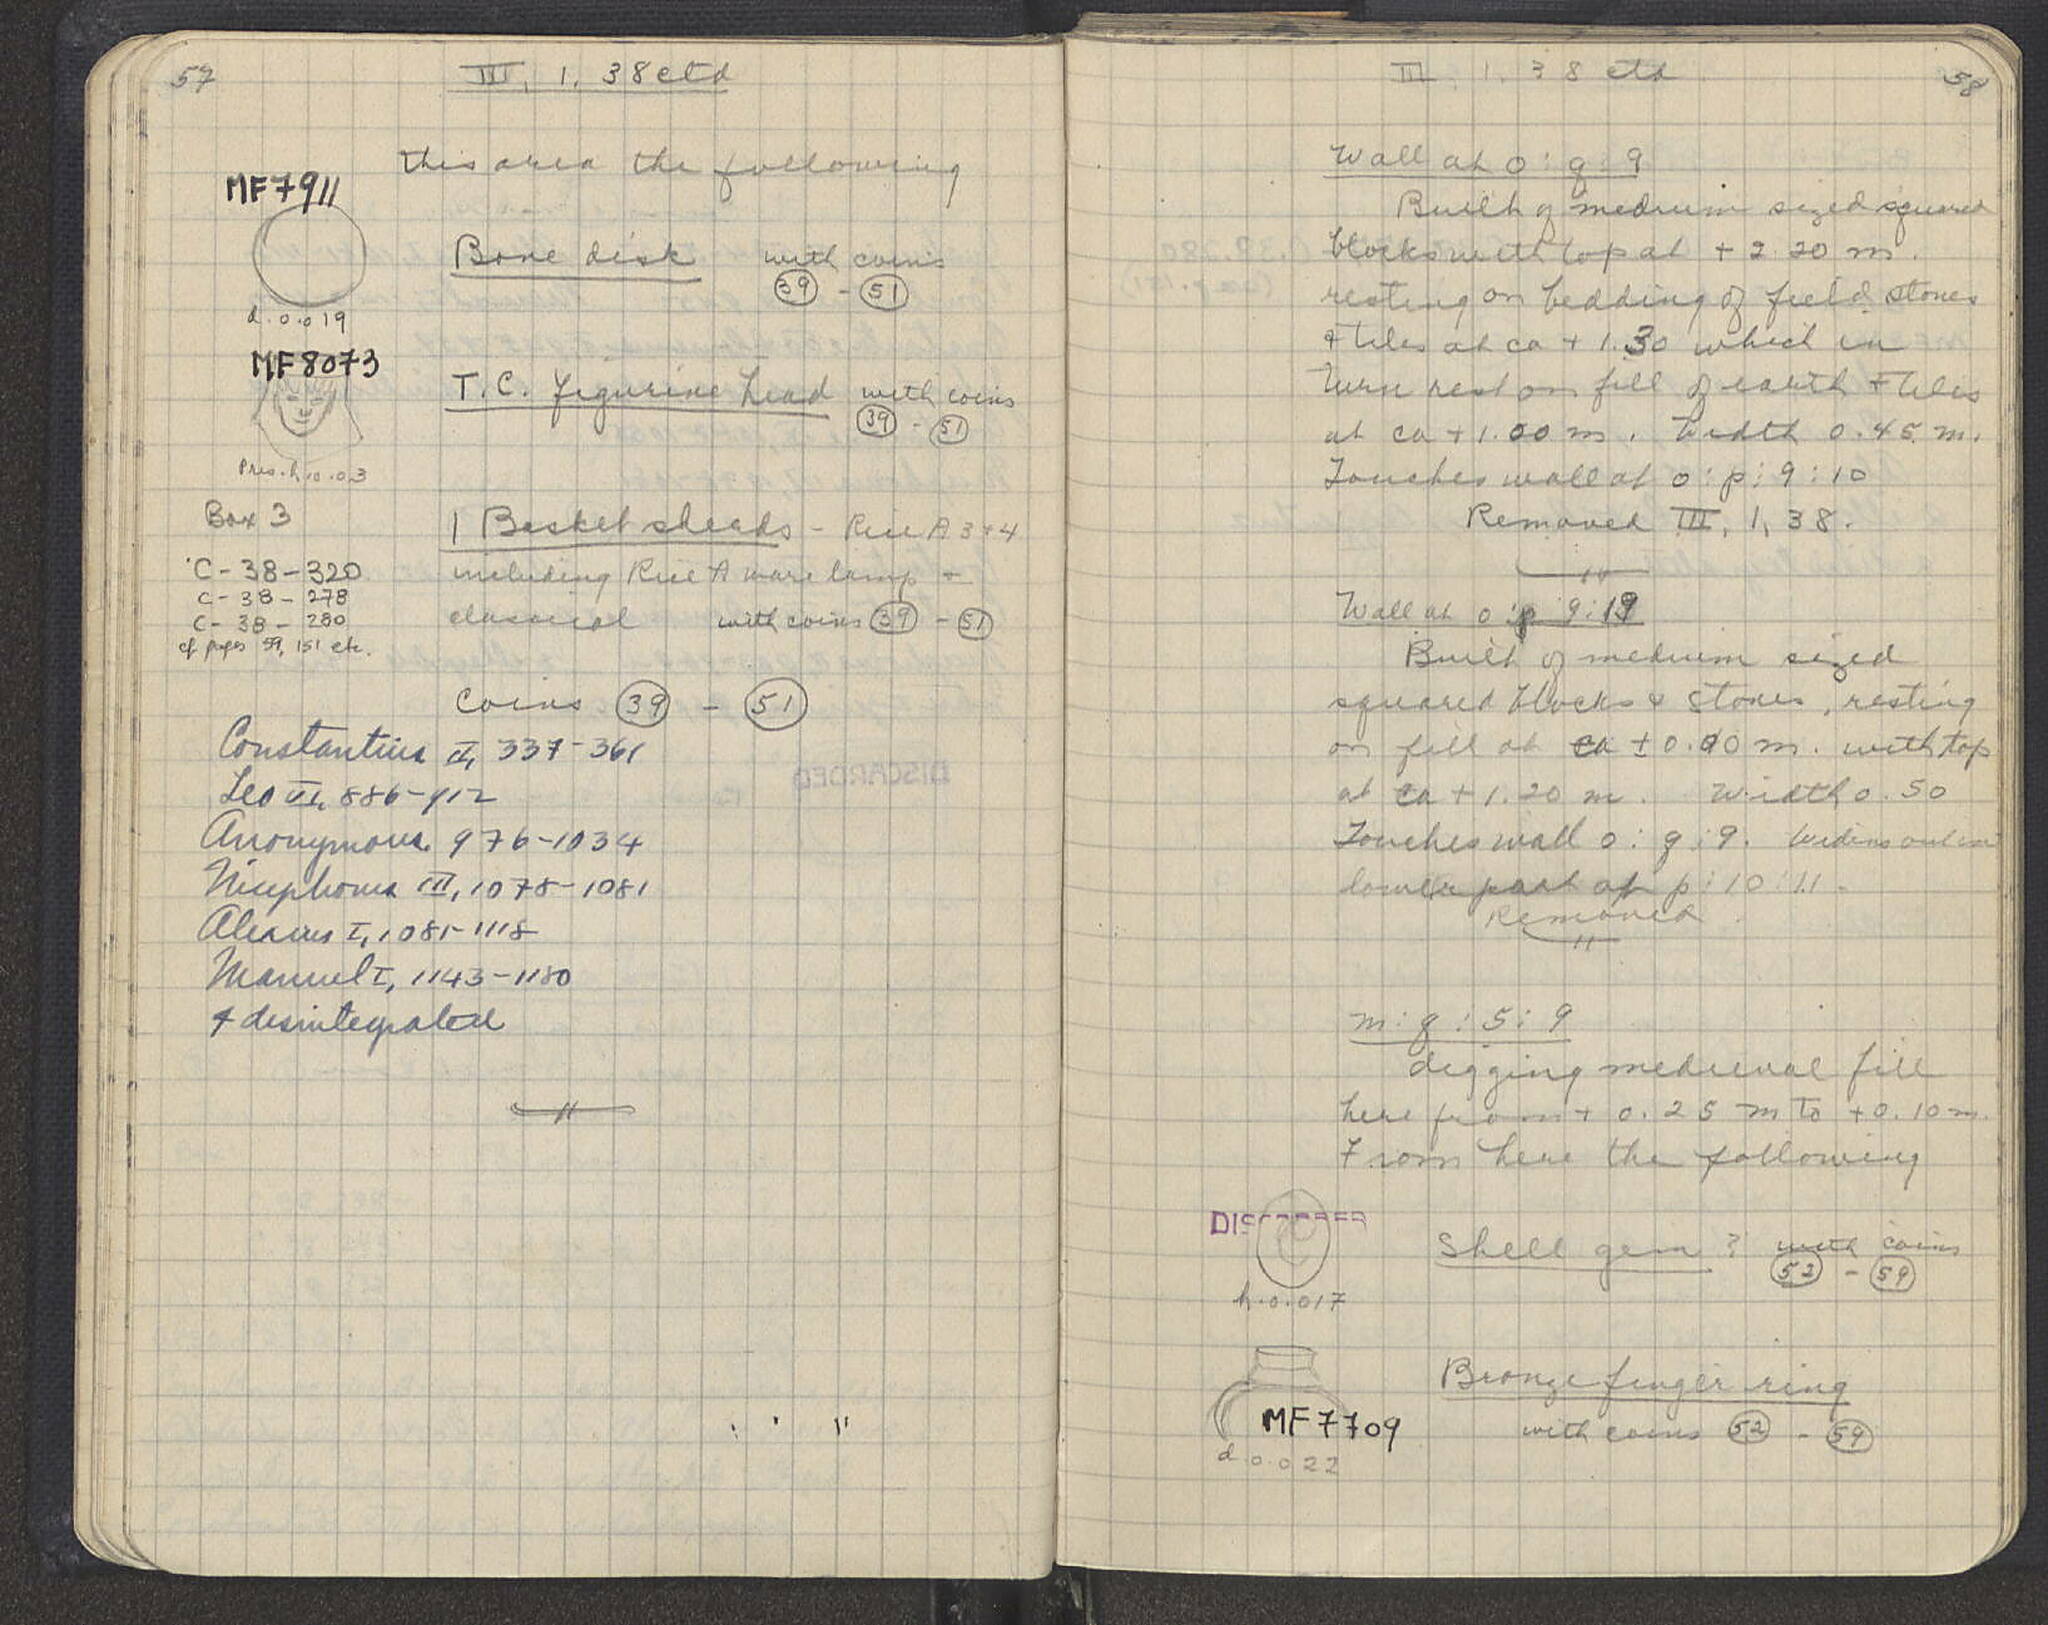 57
III, 1, 38 ctd
this area the following
MF7911
d.0.019
Bone disk with coins
39 - 51
MF8073
Pres. h. 0.03
T.C. figurine head with coins
39 - 51
Box 3
C-38-320
C-38-278
C-38-280
cf pages 59, 151 etc.
1 Basket sherds - Rice A 3+4
including Rice A ware lamp +
classical with coins 39 - 51
coins 39 - 51
Constantius II, 337-361
Leo VI, 886-912
Anonymous 976-1034
Nicephorus III, 1078-1081
Alexius I, 1081-1118
Manuel I, 1143-1180
disintegrated
58
III, 1, 38 ctd
Wall at o:q:9
Built of medium sized squared
blocks with top at + 2.20 m.
resting on bedding of field stones
& tiles at ca + 1.30 which in
turn rest on fill of earth & tiles
at ca + 1.00 m. Width 0.45 m.
Touches wall at o:p:9:10
Removed III, 1, 38.
Wall at o:p 9:
Built of medium sized
squared blocks & stones, resting
on fill at ca ± 0.00 m. with top
at ca + 1.20 m. Width 0.50
Touches wall o:q:9. Widens out in
lower part at p:10:11.
Removed
m:q:5:9
digging medieval fill
here from + 0.25 m to +0.10 m.
From here the following
DISCARDED
h.0.017
Shell gem? with coins
52 - 59
MF7709
d.0.022
Bronze finger ring
with coins 52 - 59